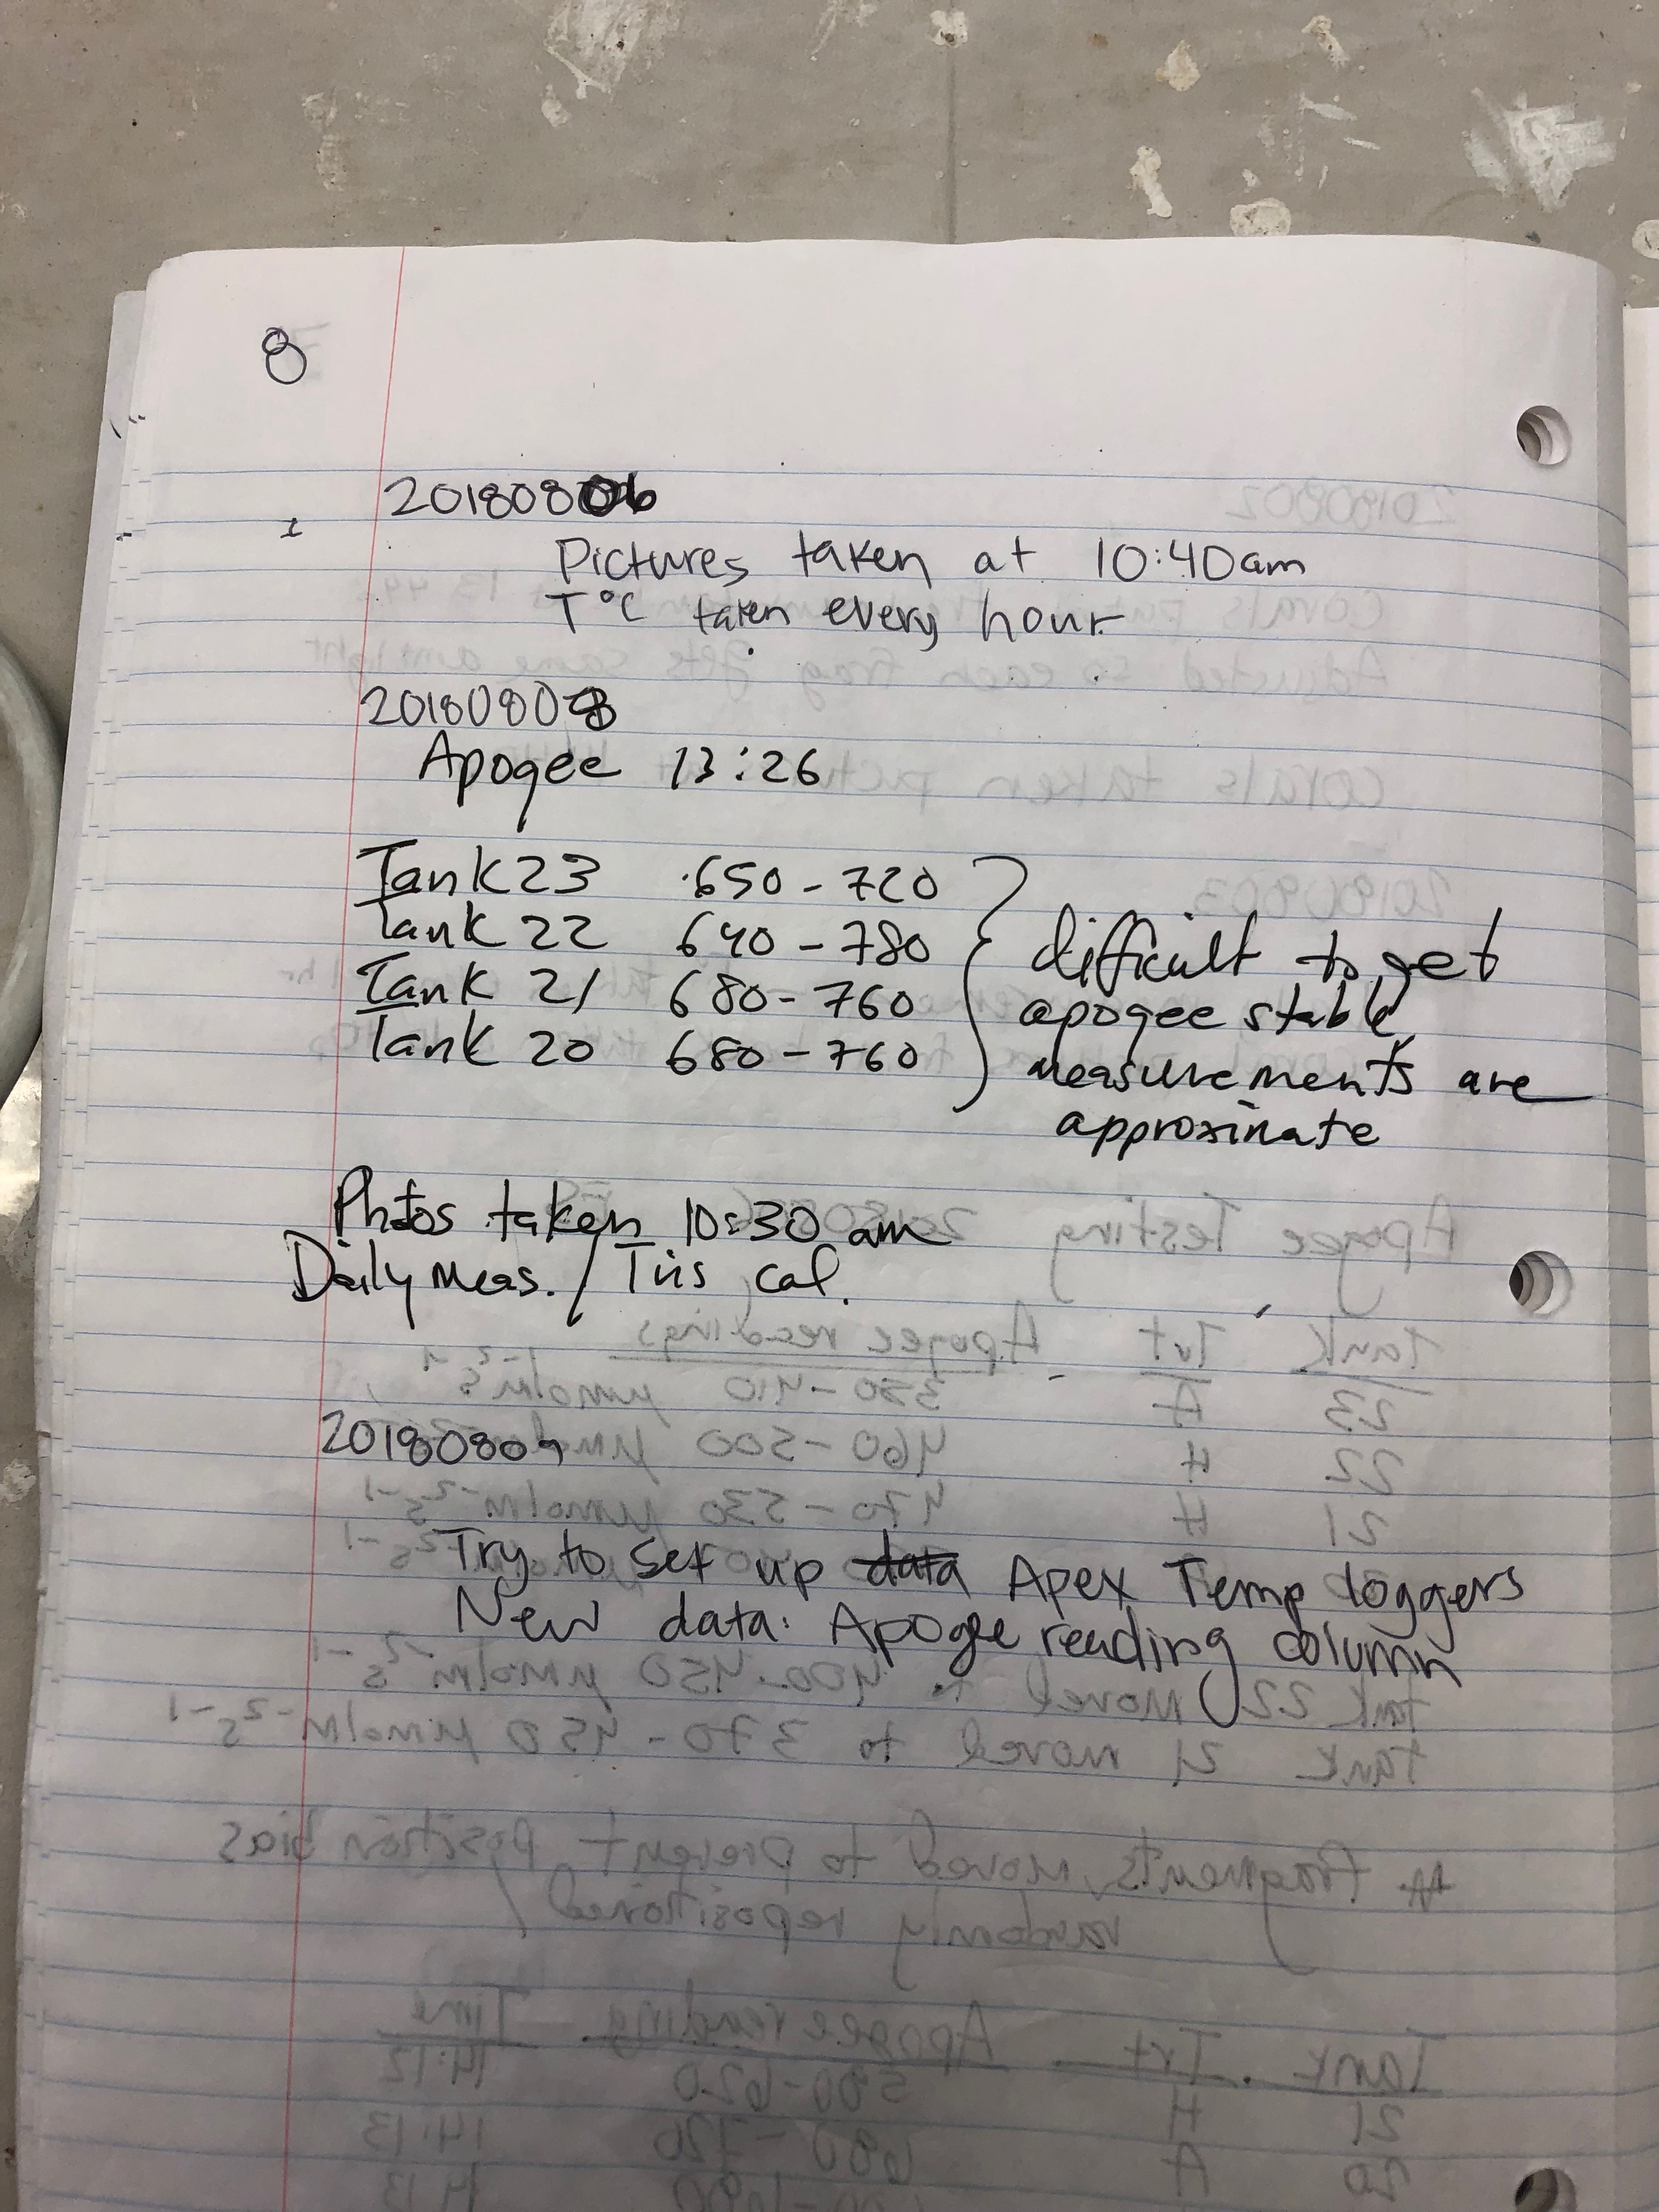 8
20180806
Pictures taken at 10:40am
T°C taken every hour
20180808
Apogee 13:26
Tank 23 650-720
Tank 22 640-780
Tank 21 680-760
Tank 20 680-760
difficult to get
apogee stable
measurements are
approximate
Photos taken 10:30 am
Daily meas. / Tris cal.
20180809
Try to set up data Apex Temp loggers
New data: Apogee reading column